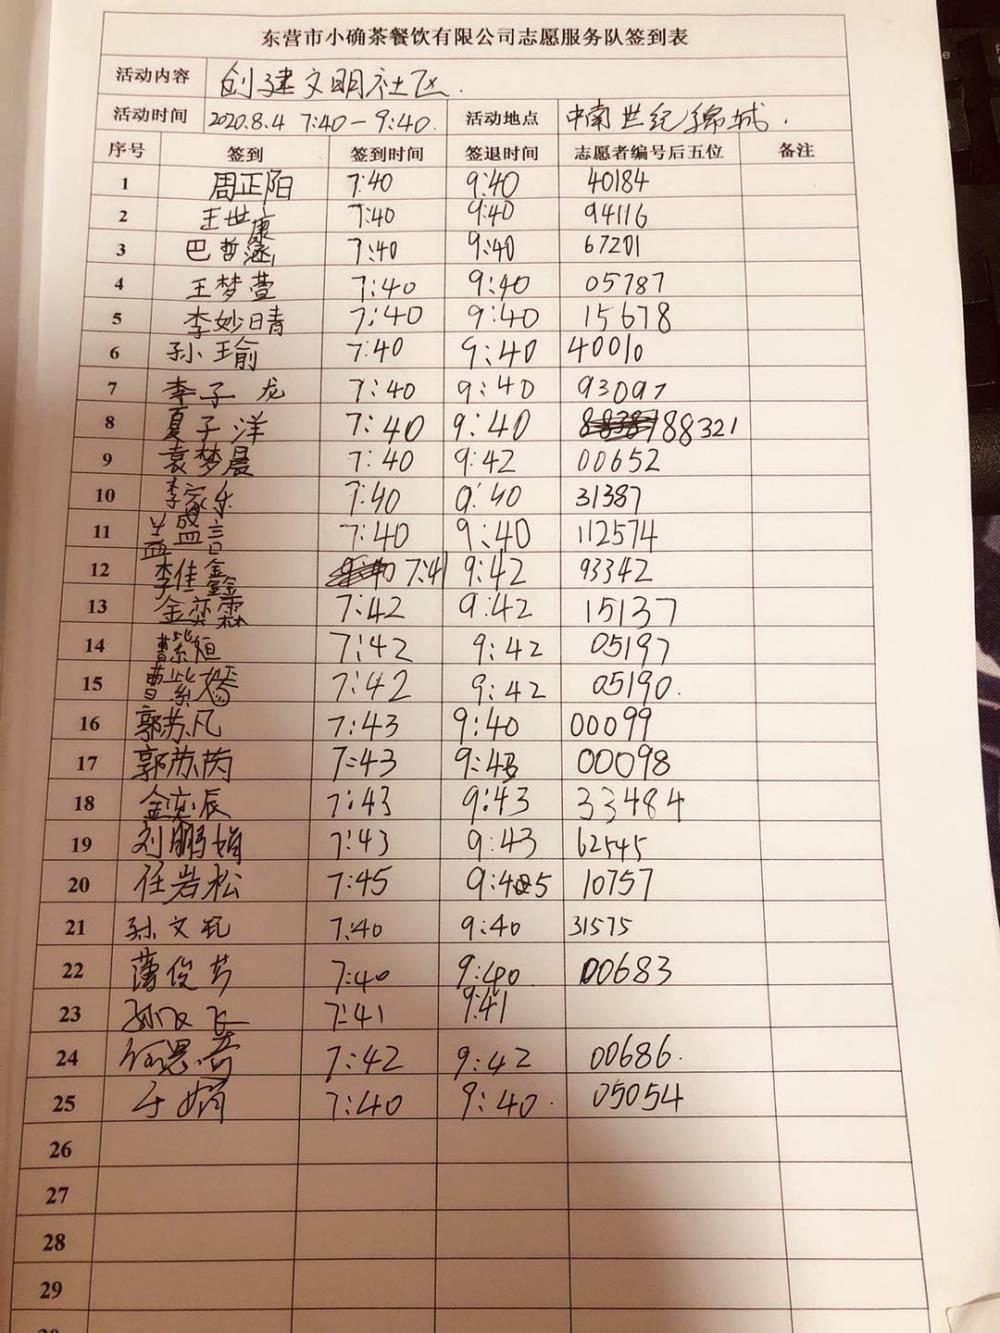 东营市小确茶餐饮有限公司志愿服务队签到表
活动内容 创建文明社区.
活动时间 2020.8.4 7:40-9:40. 活动地点 中南世纪锦城.
序号 签到 签到时间 签退时间 志愿者编号后五位 备注
1 周正阳 7:40 9:40 40184
2 王世康 7:40 9:40 94116
3 巴哲涵 7:40 9:40 67201
4 王梦萱 7:40 9:40 05787
5 李妙晴 7:40 9:40 15678
6 孙瑜 7:40 9:40 40010
7 李子龙 7:40 9:40 93097
8 夏子洋 7:40 9:40 88321
9 袁梦晨 7:40 9:42 00652
10 李家乐 7:40 9:40 31387
11 盖盟言 7:40 9:40 112574
12 李佳鑫 7:41 9:42 93342
13 金奕霖 7:42 9:42 15137
14 曹紫姮 7:42 9:42 05197
15 曹紫嫣 7:42 9:42 05190.
16 郭苏凡 7:43 9:40 00099
17 郭苏芮 7:43 9:43 00098
18 金奕辰 7:43 9:43 33484
19 刘鹏娟 7:43 9:43 62545
20 任岩松 7:45 9:45 10757
21 孙文 7:40 9:40 31575
22 薄俊芳 7:40 9:40 00683
23 孙飞 7:41 9:41
24 何思 7:42 9:42 00686.
25 于娟 7:40 9:40. 05054
26
27
28
29